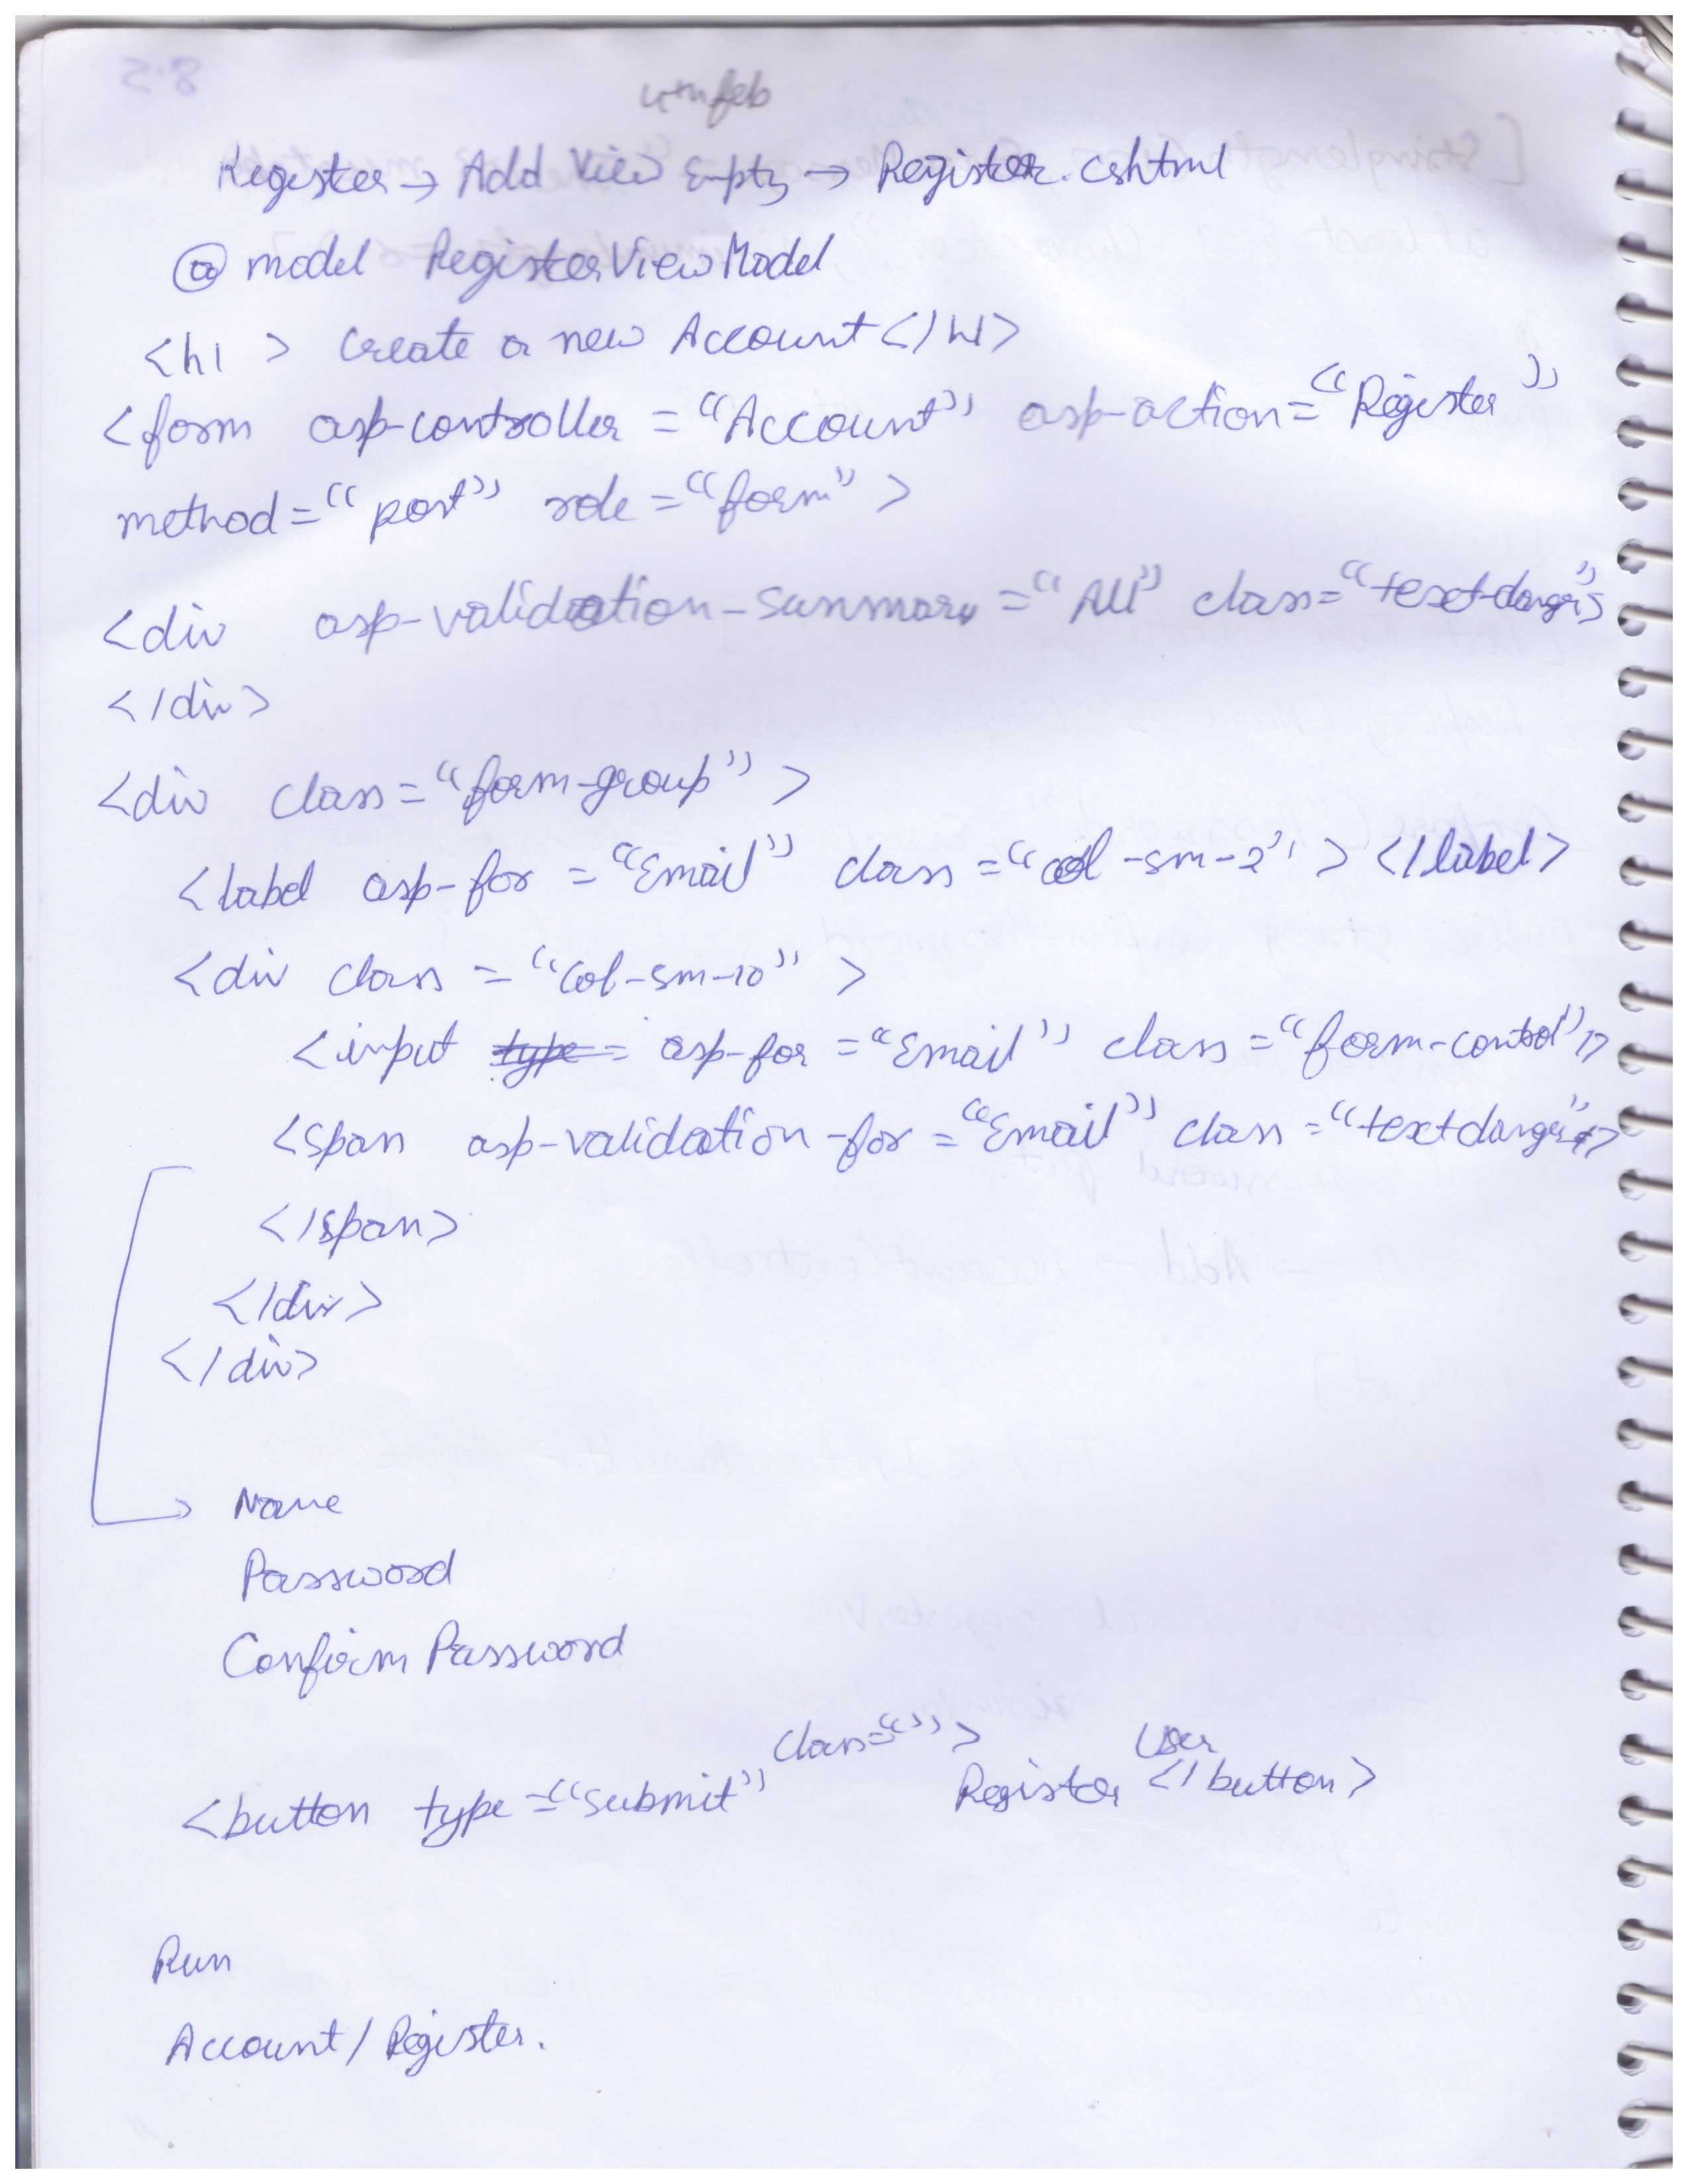 4th feb
Register → Add View Empty → Register.cshtml
@model RegisterViewModel
<h1 > Create a new Account</h1>
<form asp-controller = "Account" asp-action="Register"
method="post" role="form" >
<div asp-validation-summary ="All" class="text-danger">
</div>
<div class="form-group" >
<label asp-for = "Email" class ="col-sm-2" > </label>
<div class = "col-sm-10" >
<input asp-for ="Email" class ="form-control"/>
<span asp-validation-for ="Email" class ="text danger">
</span>
</div>
</div>
→ Name
Password
Confirm Password
<button type="submit" class=""> Register User </button>
Run
Account/Register.